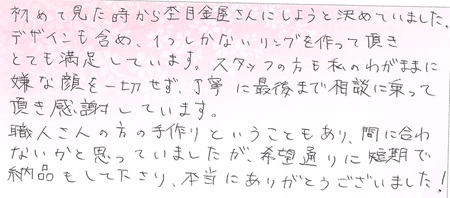 初めて見た時から杢目金屋さんにしようと決めていました。
デザインも含め、1つしかないリングを作って頂き
とても満足しています。スタッフの方も私のわがままに
嫌な顔を一切せず、丁寧に最後まで相談に乗って
頂き感謝しています。
職人さんの方の手作りということもあり、間に合わ
ないかと思っていましたが、希望通りに短期で
納品もして下さり、本当にありがとうございました!